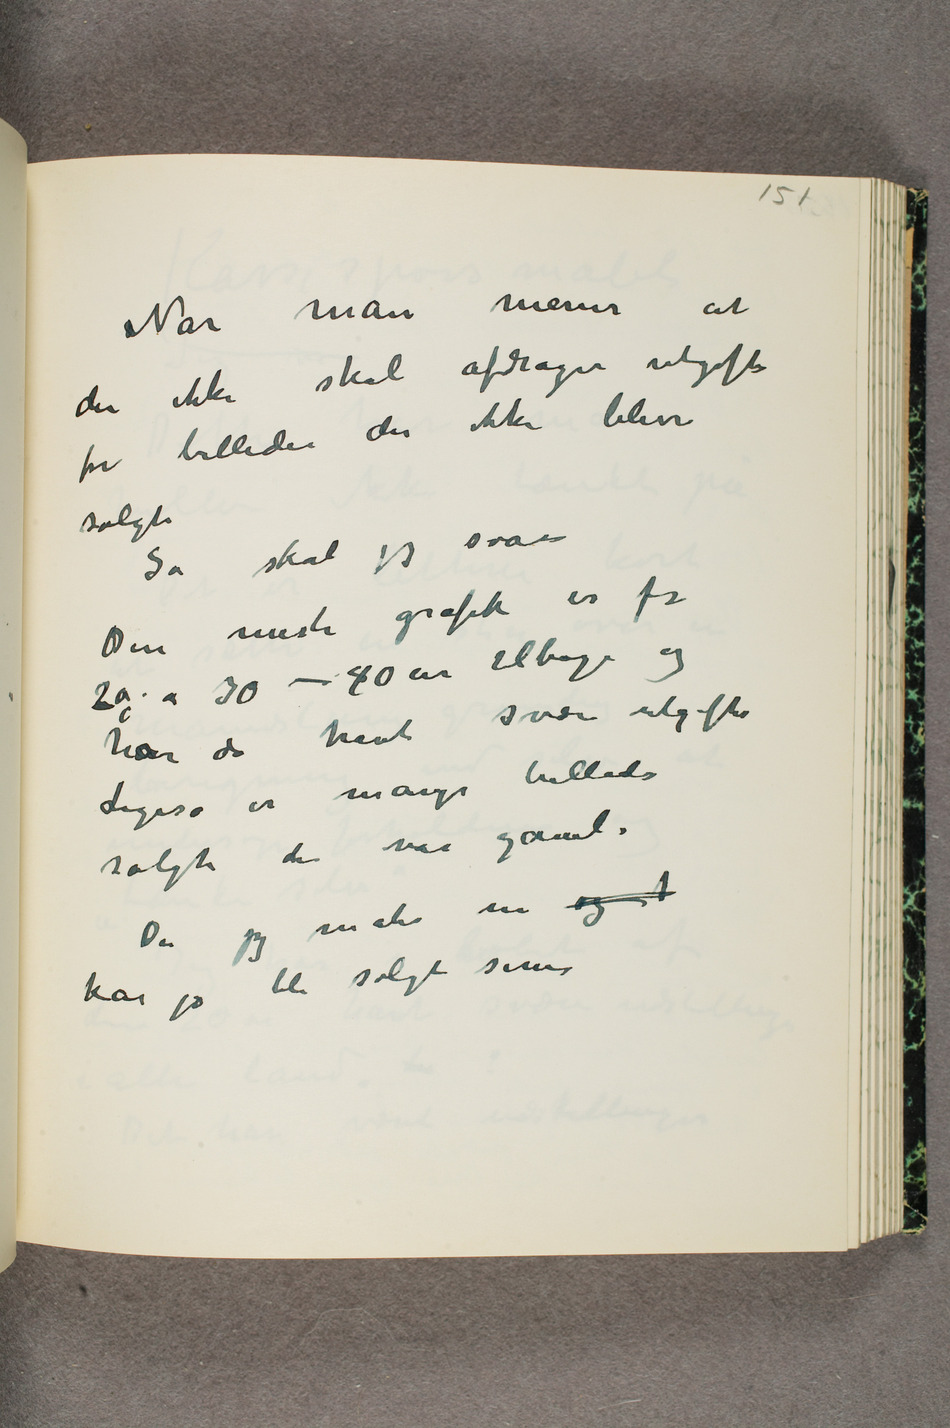 151
Når man mener at
der ikke skal afdrages utgifter
for billeder der ikke bliver
solgte
Så skal jeg svare
Den meste grafik er fra
20. a 30 – 40 år tilbage og
har da havt svære utgifter
Ligeså er mange billeder
solgte der var gamle.
Det jeg maler nu og
kan jo bli solgt senere